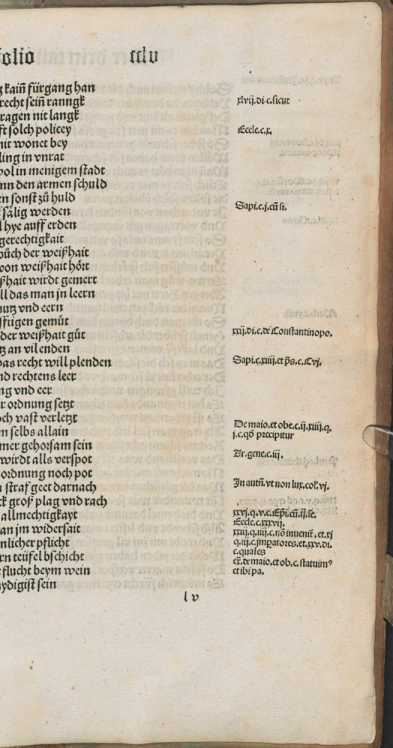 olio cclv
g kaiñ fürgang han
recht seiñ ranngk
ragen nit langk
ft solch policey
nit wonet bey
ling in vnrat
vol in menigem stadt
nn den armen schuld
en sonst zů huld
sälig werden
l hye auff erden
gerechtigkait
půch der weißhait
von weißhait hört
ßhait wirdt gemert
ll das man jn leern
nutz vnd eern
ffrigen gemüt
der weißhait gůt
tz an vil enden
as recht will plenden
nd rechtens leer
ng vnd eer
r ordnung setzt
ch vast verletzt
n selbs allain
mer gehorsam sein
wirdt alls verspot
ordnung noch pot
straf geet darnach
ck groß plag vnd rach
allmechtigkayt
an jm widersait
nlicher pflicht
rn teüfel bschicht
flucht beym wein
ydigist sein
l v
xlvij.di.c.sicut
Eccle.c.x.
Sapi.c.j.cū si.
xxij.di.c.de Constantinopo.
Sapi.c.xiiij.et ps.c.Cvj.
De maio.et obe.c.ij.xiiij.q.
j.c.qď precipitur
Ar.gene.c.iij.
Jn autñ.vt non lux.col.vj.
xxvj.q.v.c.Epī.cū.ij.se.
Eccle.c.xxvij.
xxij.q.iiij.c.nō inuenit̄.et.xj
q.iij.c.jmpatores.et.xxv.di.
c.quales
et̄.de maio.et ob.c.statuimꝰ
et ibi pa.